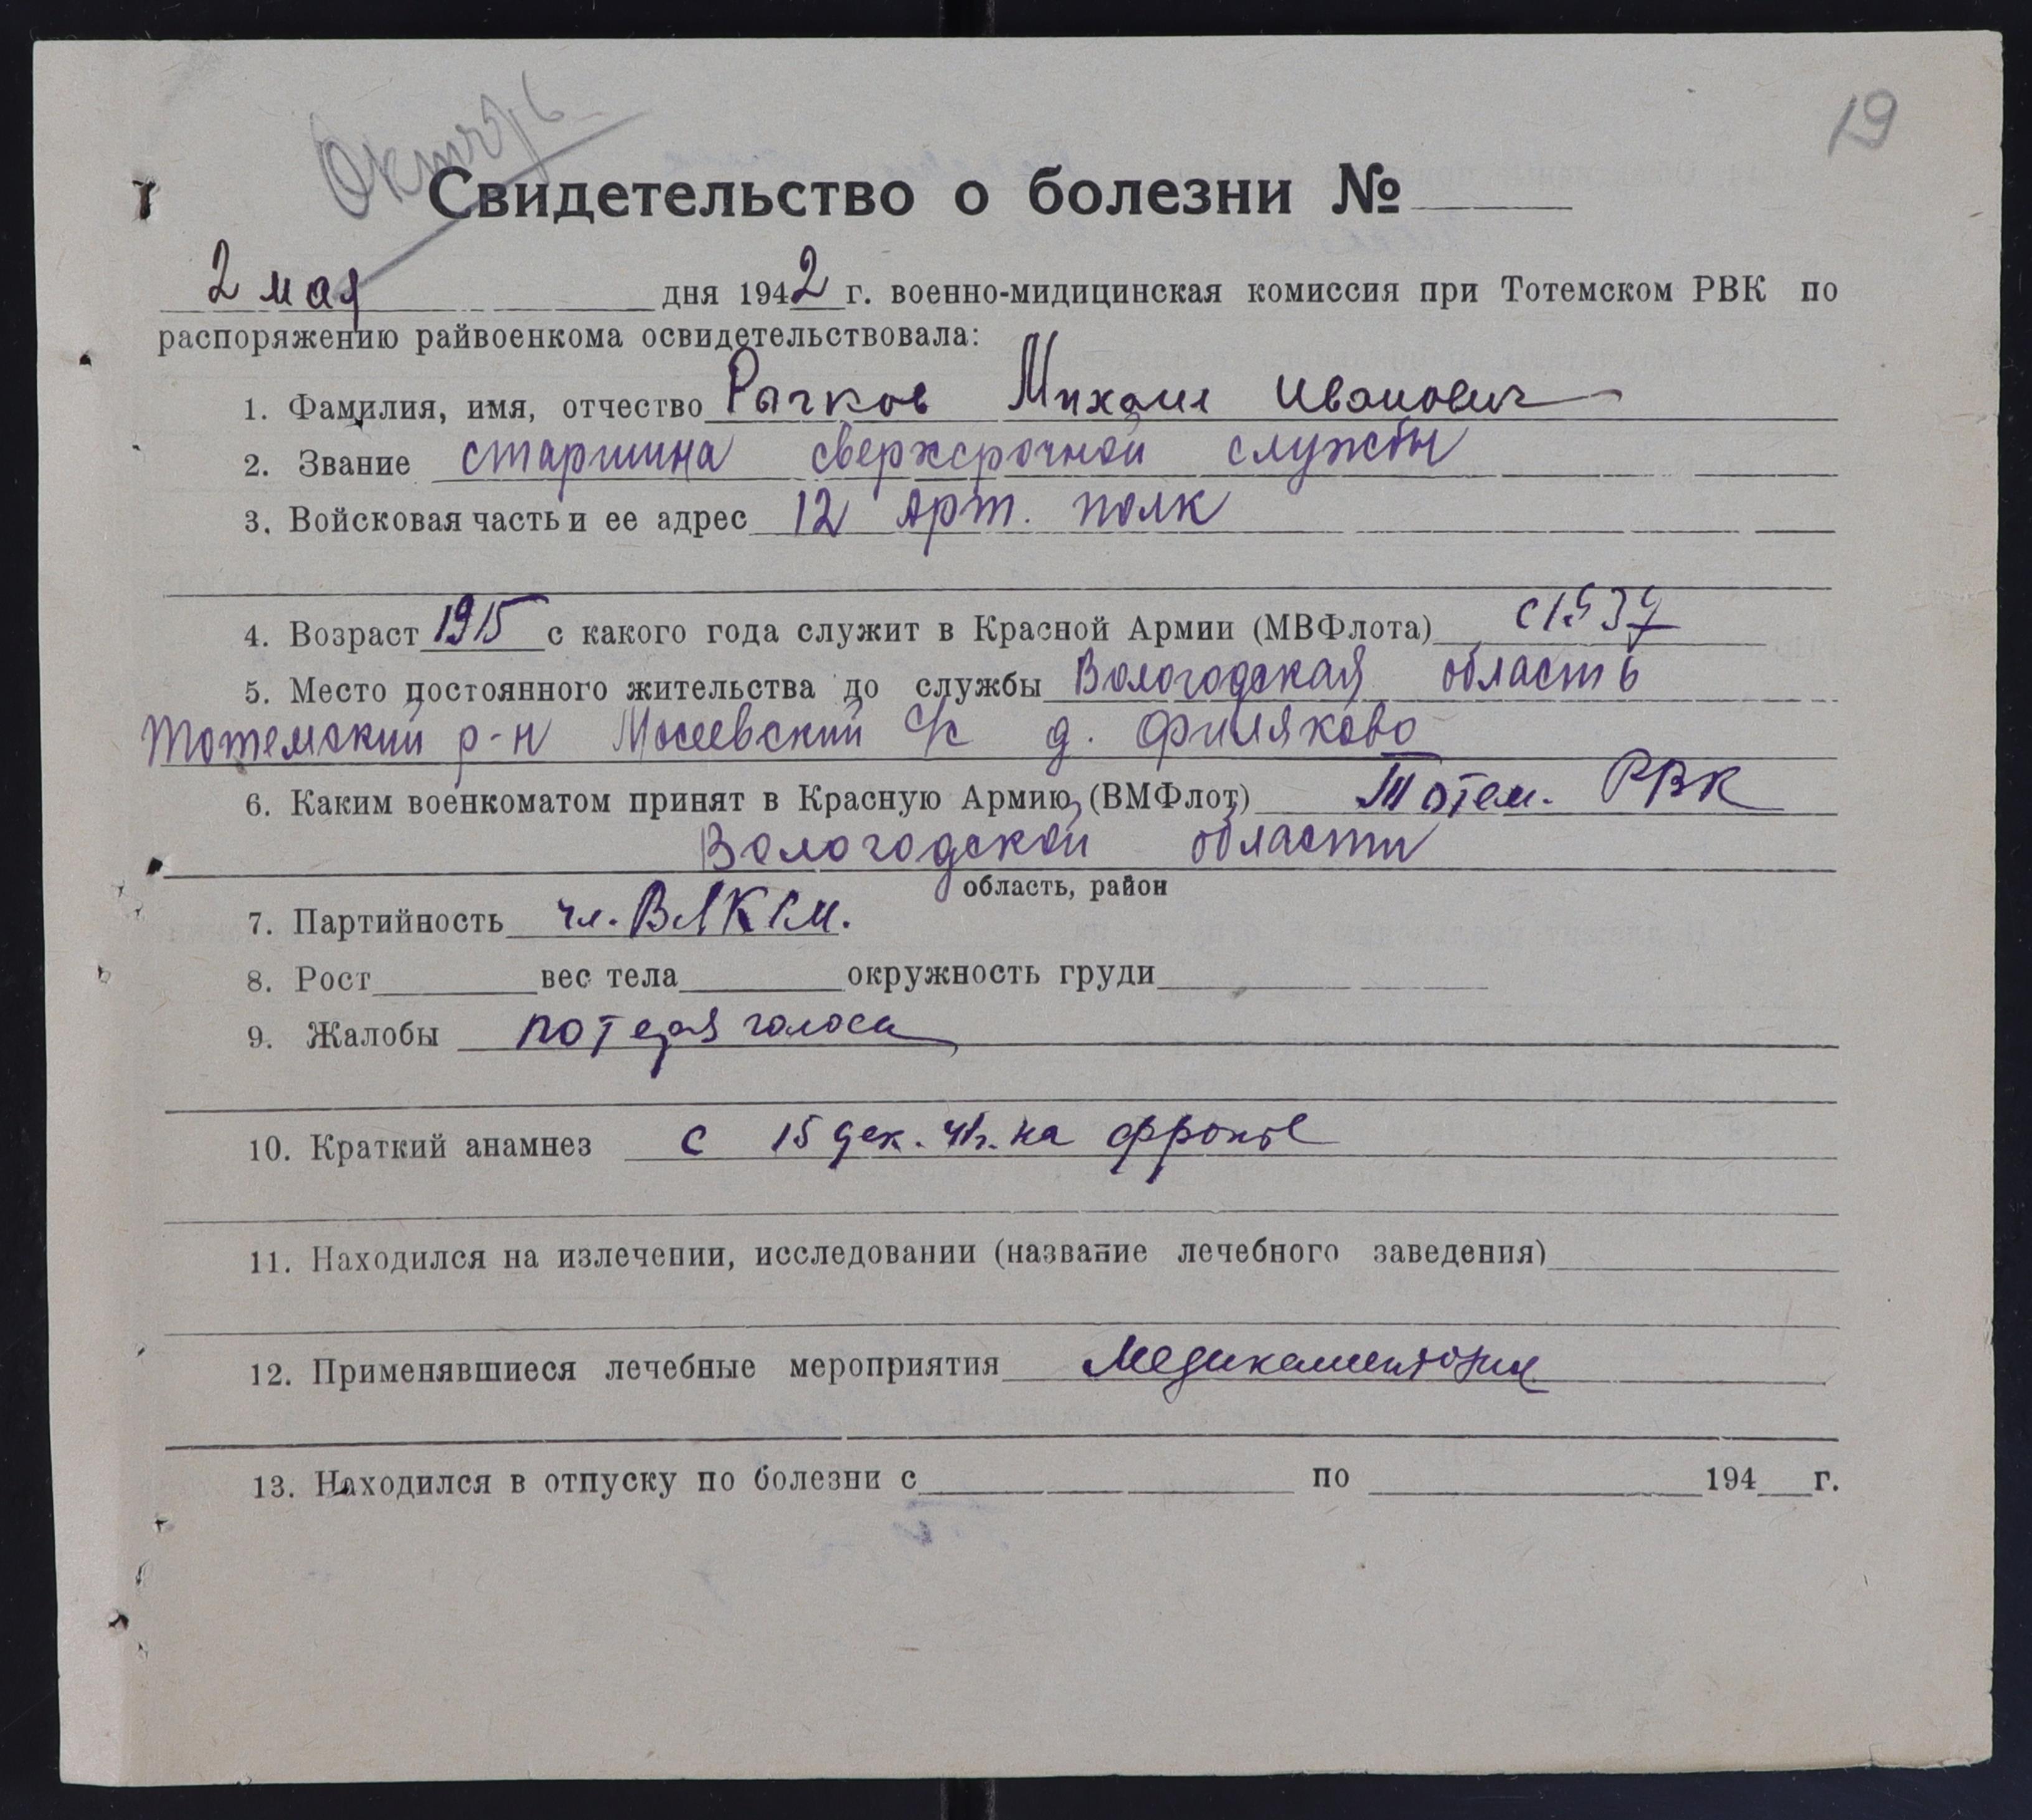 Октябрь
19
Свидетельство о болезни №
2 мая дня 1942 г. военно-мидицинская комиссия при Тотемском РВК по
распоряжению райвоенкома освидетельствовала:
1. Фамилия, имя, отчество Рычков Михаил Иванович
2. Звание старшина сверхсрочной службы
3. Войсковая часть и ее адрес 12 Арт. полк
4. Возраст 1915 с какого года служит в Красной Армии (МВФлота) с 1937
5. Место постоянного жительства до службы Вологодская область
Тотемский р-н Мосеевский с/с д. Филяково
6. Каким военкоматом принят в Красную Армию, (ВМФлот) Тотем. РВК
Вологодской области
область, район
7. Партийность чл. ВЛКСМ.
8. Рост вес тела окружность груди
9. Жалобы потеря голоса
10. Краткий анамнез с 15 дек. 41г. на фронте
11. Находился на излечении, исследовании (название лечебного заведения)
12. Применявшиеся лечебные мероприятия медикаментозные
13. Находился в отпуску по болезни с по 194 г.